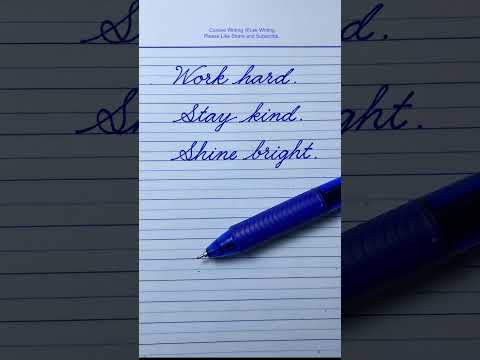 Cursive Writing |ELek Writing.
Please Like Share and Subscribe.
Work hard.
Stay kind.
Shine bright.